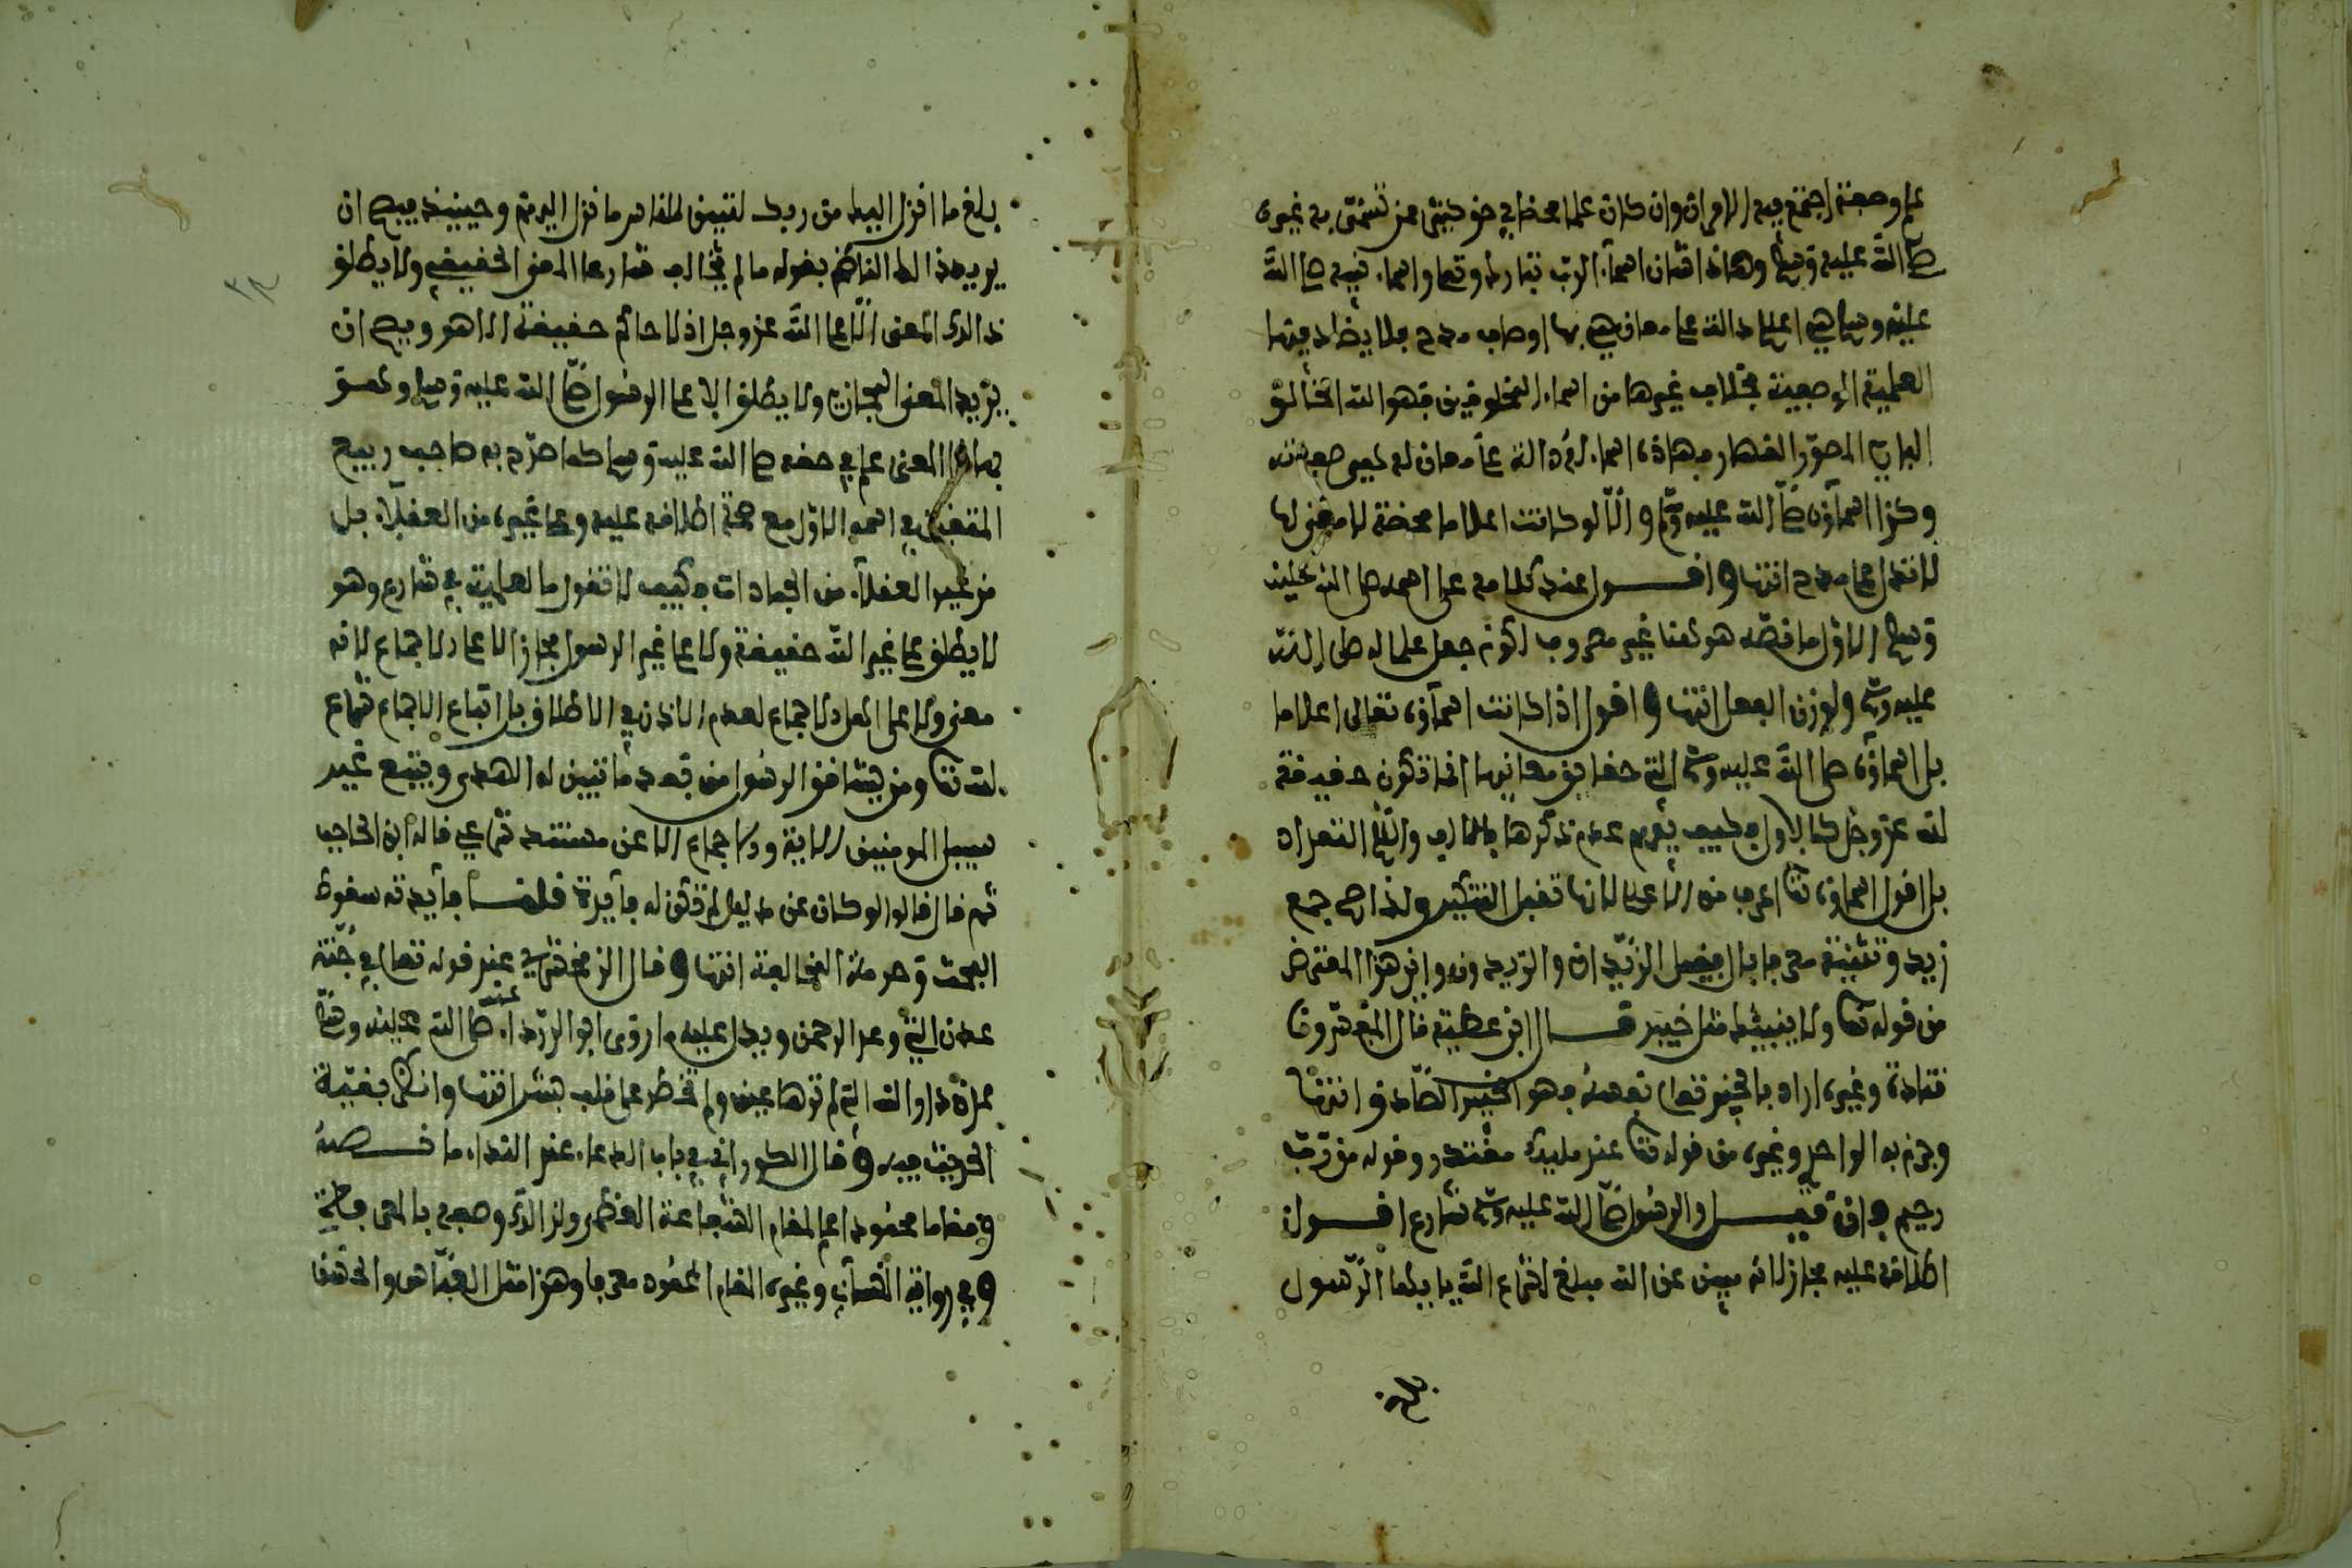 علم وصفة اجتمع فيه الامران وان كان علما محضا في حق كثير ممن تسمى به غيره
صلى الله عليه وسلم وهذا شان اسماء الرب تبارك وتعالى واسماء نبيه صلى الله
عليه وسلم هي اعلام دالة على معان هي بها اوصاف مدح فلا يضاد فيها
العلمية الوصفية بخلاف غيرها من اسماء المخلوقين فهو الله الخالق
البارئ المصور القهار فهذه اسماء له دالة على معان له هي صفته
وكذا اسماؤه صلى الله عليه وسلم والا لو كانت اعلاما محضة لا معنى لها
لا تدل على مدح انتهى اقول عند كلامه على اسمه صلى الله عليه
وسلم الاول ما نصه هو هنا غير مصروف لكونه جعل علما له صلى الله
عليه وسلم ولوزن الفعل انتهى اقول اذا كانت اسماؤه تعالى اعلاما
بل اسماؤه صلى الله عليه وسلم التي حقايق معانيها انما تكون حقيقة
لله عز وجل كالاول فكيف يوهم عدم ذكرها بالالف واللام التعداد
بل اقول اسماؤه تعالى اعرف من الاعلام لانها تقبل التنكير ولذا صح جمع
زيد وتثنيته معرفا بال فيقال الزيدان والزيدون واين هذا المعترض
من قوله تعالى ولا ينبئك مثل خبير قال ابن عطية قال المفسرون
قتادة وغيره اراد بالخبير تعالى نفسه فهو الخبير الصادق انتهى
وجزم به الواحدي وغيره من قوله تعالى عند مليك مقتدر وقوله من رب
رحيم فان قيل والرسول صلى الله عليه وسلم شارع اقول
اطلاقه عليه مجاز لانه مبين عن الله مبلغ لشرع الله يا ايها الرسول
بلغ ما انزل اليك من ربك لتبين للناس ما نزل اليهم وحينيذ فيصح ان
يريد هذا الناظم بقوله ما لم يخالف شارعا المعنى الحقيقي ولا يطلق
ذالك المعنى الا على الله عز وجل اذ لا حاكم حقيقة الا هو ويصح ان
يريد المعنى المجازي ولا يطلق الا على الرسول صلى الله عليه وسلم وهو
بهذا المعنى علم في حقه صلى الله عليه وسلم كما صرح به صاحب ربيع
في اسمه الاول مع صحة اطلاقه عليه وعلى غيره من العقلاء بل
من غير العقلاء من الجمادات فكيف لا تقول بالعلمية في شارع وهو
لا يطلق على غير الله حقيقة ولا على غير الرسول مجازا لا على الاجماع لانه
معنى ولا على اهل الاجماع لعدم الاذن في الاطلاق بل اتباع الاجماع شرع
لله تعالى ومن يشاقق الرسول من بعد ما تبين له الهدى ويتبع غير
سبيل المومنين الاية ولا اجماع الا عن مستند شرعي قاله ابن الحاجب
ثم قال قالوا لو كان عن دليل لم تكن له فايدة قلنا فايدته سقوط
البحث وحرمة المخالفة انتهى وقال الزمخشري عند قوله تعالى في جنة
عدن التي وعد الرحمن ويدل عليه ما روى ابو الدرداء عنه صلى الله عليه وسلم
عدن دار الله التي لم ترها عين ولم تخطر على قلب بشر انتهى وانظر بقية
الحديث فيه وقال الكوراني في باب الدعاء عند النداء ما نصه
مقاما محمودا على المقام الشفاعة العظمى ولذالك وصفه بالمعرفة
وفي رواية النسائي وغيره المقام المحمود معرفا وهذا مثل العباس والحسن